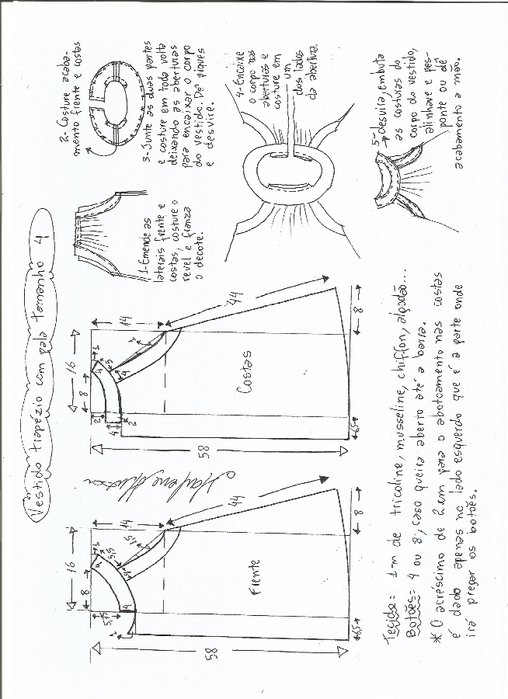 Vestido trapézio com pala tamanho 4
16
8
14
44
58
8
Frente
16
8
14
44
58
8
Costas
1-Emende as
laterais frente e
costas, costure o
revel e franza
o decote.
2-Costure acaba-
mento frente e costas
3-Junte as duas partes
e costure em toda volta
deixando as aberturas
para encaixar o corpo
do vestido. Dê piques
e desvire.
4-Encaixe
o corpo nas
aberturas e
costure em
um
dos lados
da abertura.
5-desvira, embuta
as costuras do
corpo do vestido,
alinhave e pes-
ponte ou dê
acabamento a mão.
Tecido= 1m de tricoline, musseline, chiffon, algodão...
Botões= 4 ou 8, caso queira aberto até a barra.
* O acréscimo de 2cm para o abotoamento nas costas
é dado apenas no lado esquerdo que é a parte onde
irá pregar os botões.